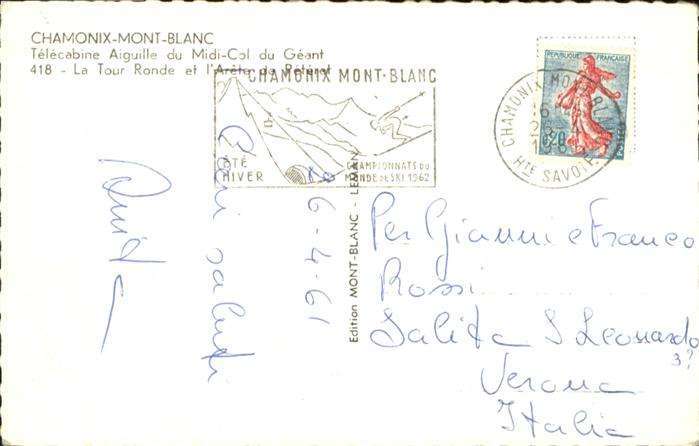 CHAMONIX-MONT-BLANC
Télécabine Aiguille du Midi-Col du Géant
418 - La Tour Ronde et l'Arête de Péteret
CHAMONIX MONT-BLANC
ÉTÉ
HIVER
CHAMPIONNATS DU
MONDE DE SKI 1962
REPUBLIQUE FRANÇAISE
0,20
POSTES
CHAMONIX MONT-BL
HTE SAVOIE
Edition MONT-BLANC - LEMAN
6-4-61
saluti
Per Gianni e Franco
Rossi
Salita S Leonardo
3?
Verona
Italia